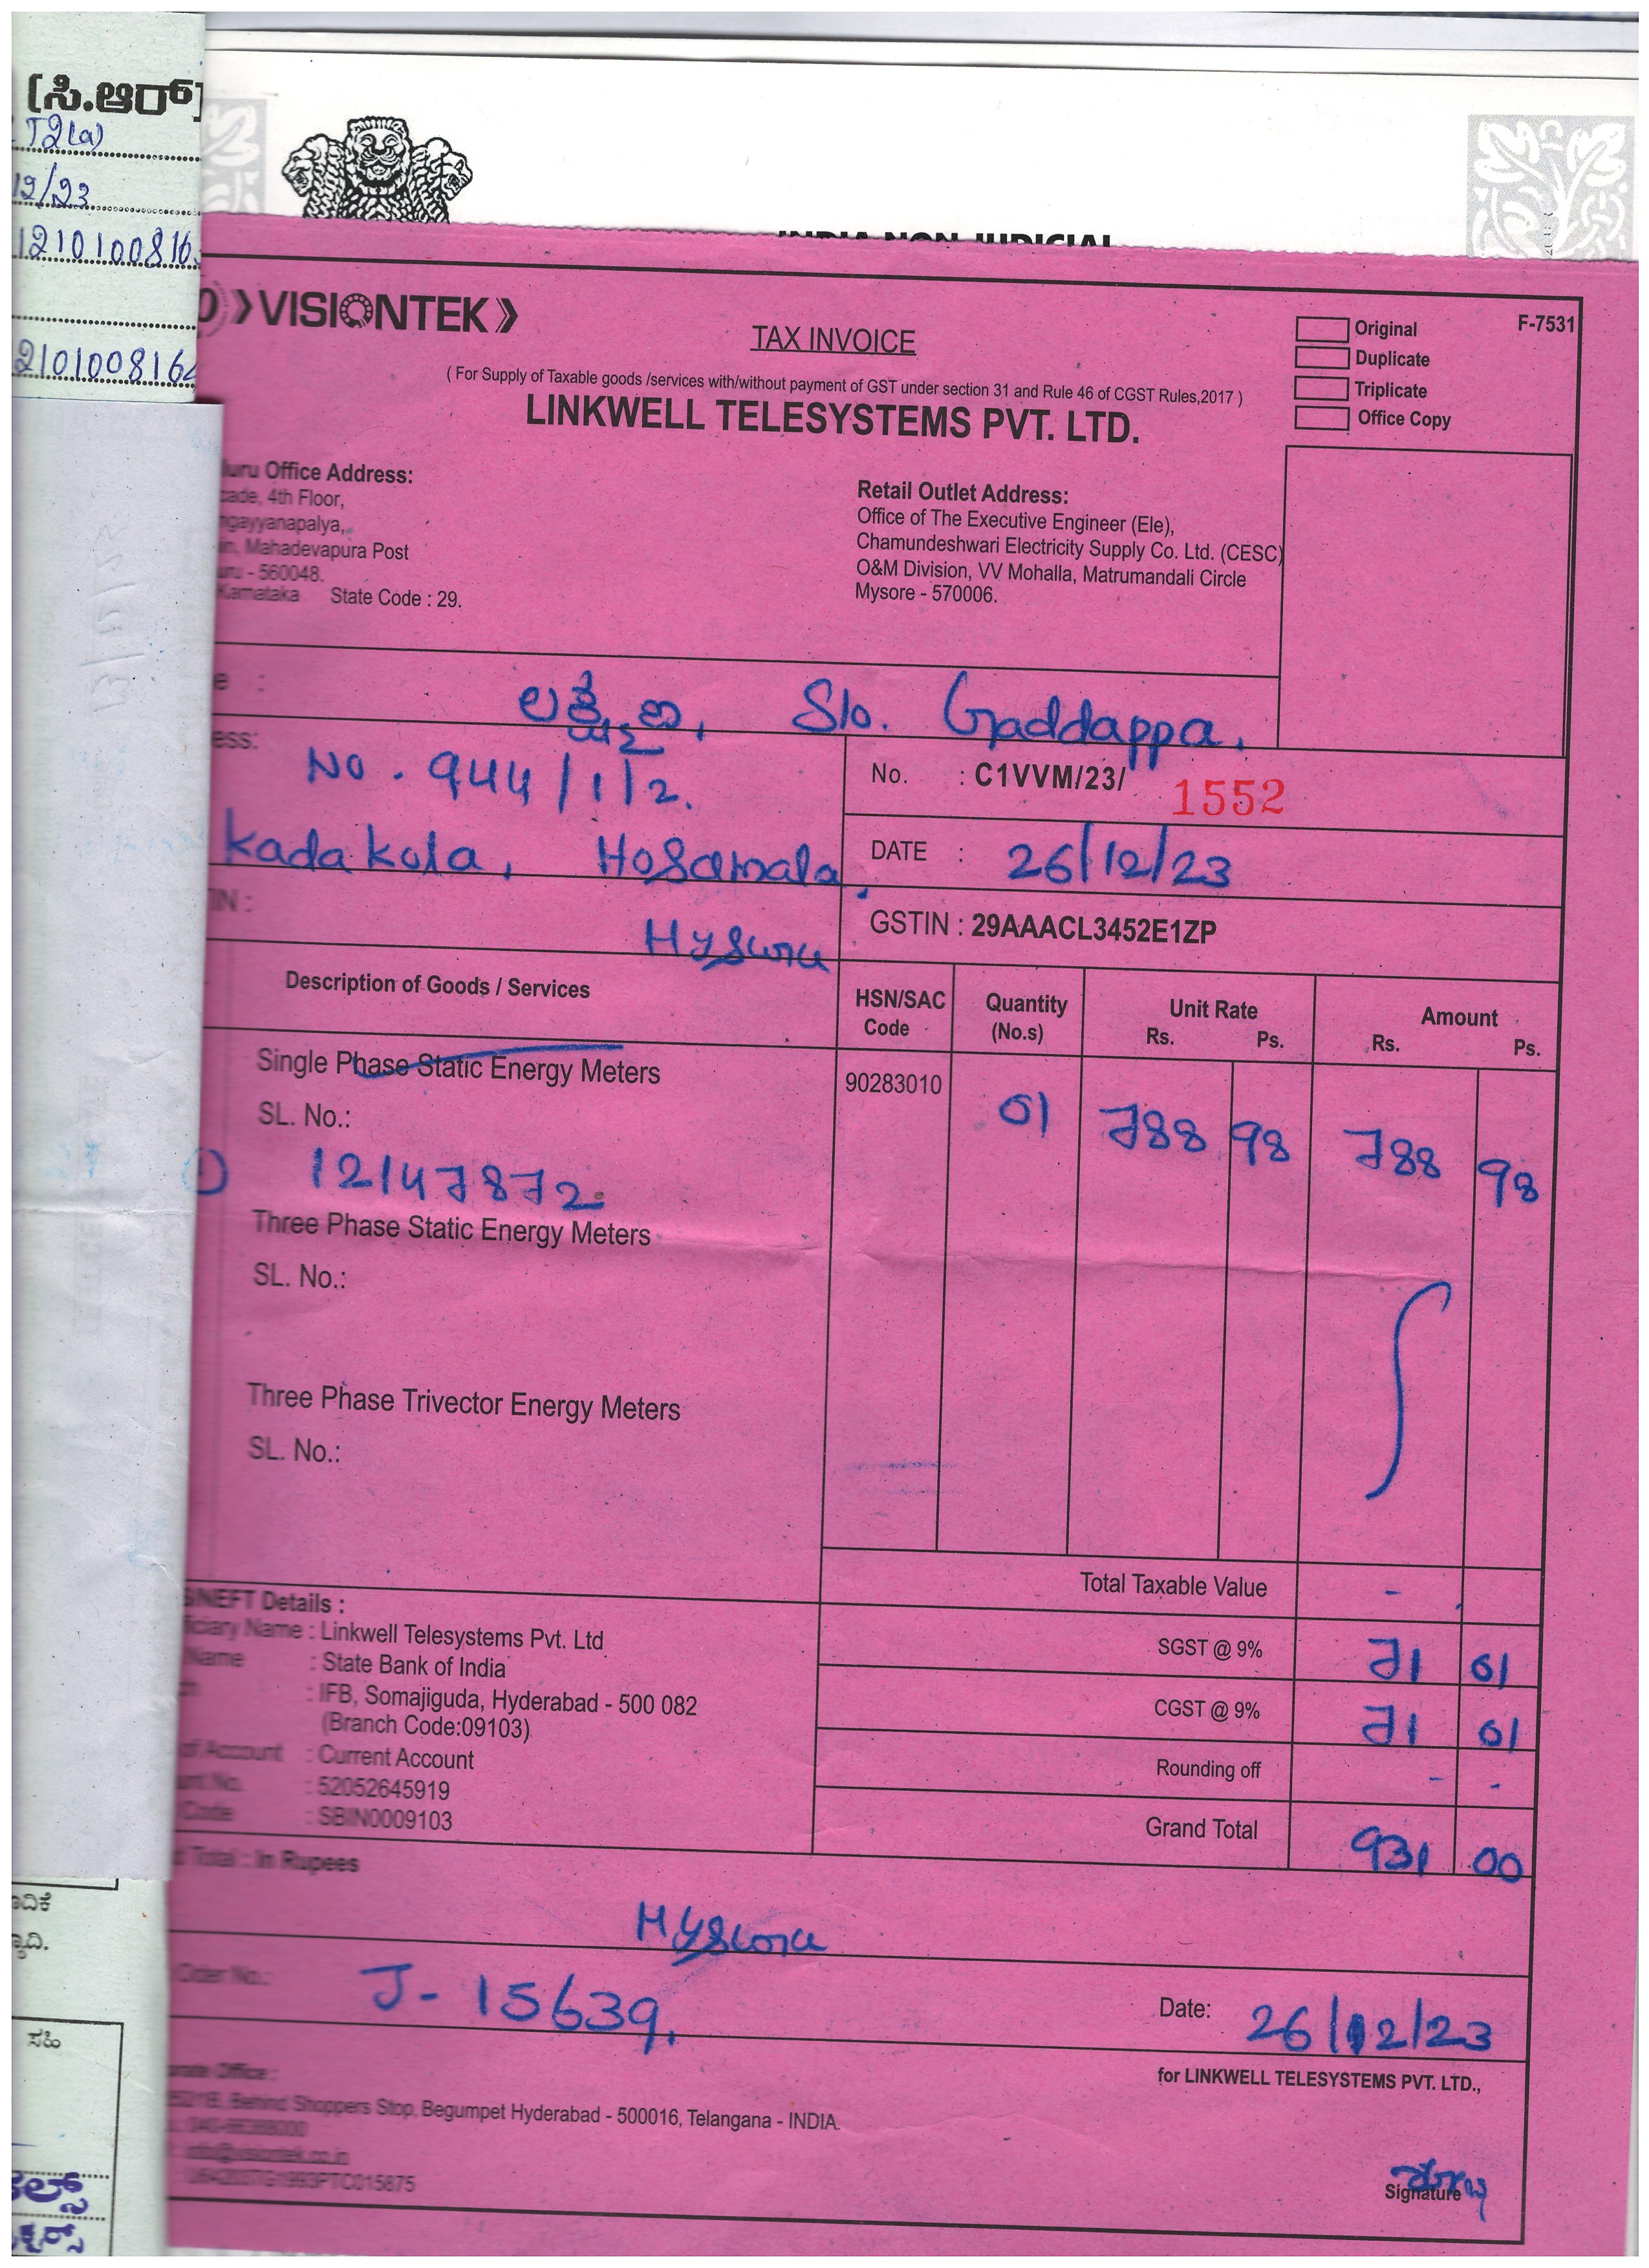 [ಸಿ.ಆರ್]
T2(a)
12/23
1210100816
2101008164
INDIA NON JUDICIAL
VISIONTEK
TAX INVOICE
Original
Duplicate
Triplicate
Office Copy
F-7531
( For Supply of Taxable goods /services with/without payment of GST under section 31 and Rule 46 of CGST Rules,2017 )
LINKWELL TELESYSTEMS PVT. LTD.
Office Address:
4th Floor,
Mahadevapura Post
- 560048.
Karnataka State Code : 29.
Retail Outlet Address:
Office of The Executive Engineer (Ele),
Chamundeshwari Electricity Supply Co. Ltd. (CESC)
O&M Division, VV Mohalla, Matrumandali Circle
Mysore - 570006.
S/o. Gaddappa.
No. 944/1/2.
Kadakola, Hosamala.
Mysuru
No. : C1VVM/23/ 1552
DATE : 26/12/23
GSTIN : 29AAACL3452E1ZP
Description of Goods / Services
HSN/SAC Code
Quantity (No.s)
Unit Rate Rs. Ps.
Amount Rs. Ps.
Single Phase Static Energy Meters
90283010 01 788 98 788 98
SL. No.:
1) 12147872
Three Phase Static Energy Meters
SL. No.:
Three Phase Trivector Energy Meters
SL. No.:
Total Taxable Value -
SGST @ 9% 71 01
CGST @ 9% 71 01
Rounding off - -
Grand Total 931 00
NEFT Details :
Name : Linkwell Telesystems Pvt. Ltd
Name : State Bank of India
: IFB, Somajiguda, Hyderabad - 500 082
(Branch Code:09103)
of Account : Current Account
No. : 52052645919
Code : SBIN0009103
Total : In Rupees
Mysuru
Order No.: J- 15639.
Date: 26/12/23
for LINKWELL TELESYSTEMS PVT. LTD.,
Office :
Behind Shoppers Stop, Begumpet Hyderabad - 500016, Telangana - INDIA.
Signature
ಸಹಿ